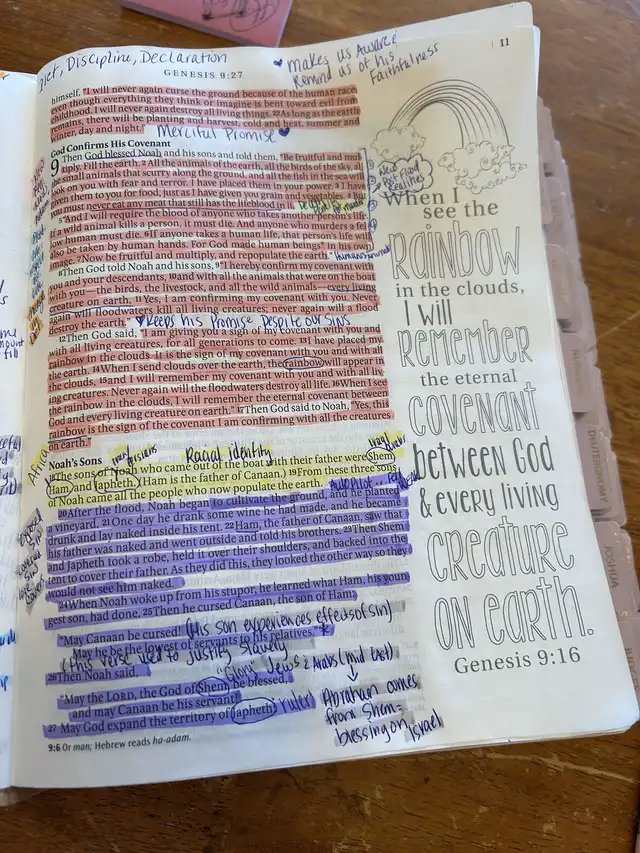 Diet, Discipline, Declaration
11
GENESIS 9:27
♥ makes us aware &
Remind us of his
Faithfulness
himself, "I will never again curse the ground because of the human race,
even though everything they think or imagine is bent toward evil from
childhood. I will never again destroy all living things. 22 As long as the earth
remains, there will be planting and harvest, cold and heat, summer and
winter, day and night."
Merciful Promise ♥
God Confirms His Covenant
9 Then God blessed Noah and his sons and told them, "Be fruitful and mul-
tiply. Fill the earth. 2 All the animals of the earth, all the birds of the sky, all
the small animals that scurry along the ground, and all the fish in the sea will
look on you with fear and terror. I have placed them in your power. 3 I have
given them to you for food, just as I have given you grain and vegetables. 4 But
you must never eat any meat that still has the lifeblood in it.
5 "And I will require the blood of anyone who takes another person's life.
If a wild animal kills a person, it must die. And anyone who murders a fel-
low human must die. 6 If anyone takes a human life, that person's life will
also be taken by human hands. For God made human beings* in his own
image. 7 Now be fruitful and multiply, and repopulate the earth."
8 Then God told Noah and his sons, 9 "I hereby confirm my covenant with
you and your descendants, 10 and with all the animals that were on the boat
with you—the birds, the livestock, and all the wild animals—every living
creature on earth. 11 Yes, I am confirming my covenant with you. Never
again will floodwaters kill all living creatures; never again will a flood
destroy the earth."
♥ Keeps his Promise Despite our sins
12 Then God said, "I am giving you a sign of my covenant with you and
with all living creatures, for all generations to come. 13 I have placed my
rainbow in the clouds. It is the sign of my covenant with you and with all
the earth. 14 When I send clouds over the earth, the rainbow will appear in
the clouds, 15 and I will remember my covenant with you and with all liv-
ing creatures. Never again will the floodwaters destroy all life. 16 When I see
the rainbow in the clouds, I will remember the eternal covenant between
God and every living creature on earth." 17 Then God said to Noah, "Yes, this
rainbow is the sign of the covenant I am confirming with all the creatures
on earth."
Africa
Racial identity
Noah's Sons
18 The sons of Noah who came out of the boat with their father were Shem,
Ham, and Japheth. (Ham is the father of Canaan.) 19 From these three sons
of Noah came all the people who now populate the earth.
20 After the flood, Noah began to cultivate the ground, and he planted
a vineyard. 21 One day he drank some wine he had made, and he became
drunk and lay naked inside his tent. 22 Ham, the father of Canaan, saw that
his father was naked and went outside and told his brothers. 23 Then Shem
and Japheth took a robe, held it over their shoulders, and backed into the
tent to cover their father. As they did this, they looked the other way so they
would not see him naked.
24 When Noah woke up from his stupor, he learned what Ham, his youn-
gest son, had done. 25 Then he cursed Canaan, the son of Ham:
"May Canaan be cursed! (His son experiences effects of sin)
May he be the lowest of servants to his relatives."
(this verse used to justify slavery
26 Then Noah said,
Jews & Arabs (mid East)
"May the LORD, the God of Shem, be blessed,
and may Canaan be his servant!
27 May God expand the territory of Japheth! ruler
Abraham comes
from Shem =
blessing on Israel
9:6 Or man; Hebrew reads ha-adam.
New
Flood
Realities
When I
see the
RAINBOW
in the clouds,
I will
REMEMBER
the eternal
COVENANT
BETWEEN GOD
& every living
CREATURE
ON EARTH.
Genesis 9:16
DEUTERONOMY
JOSHUA